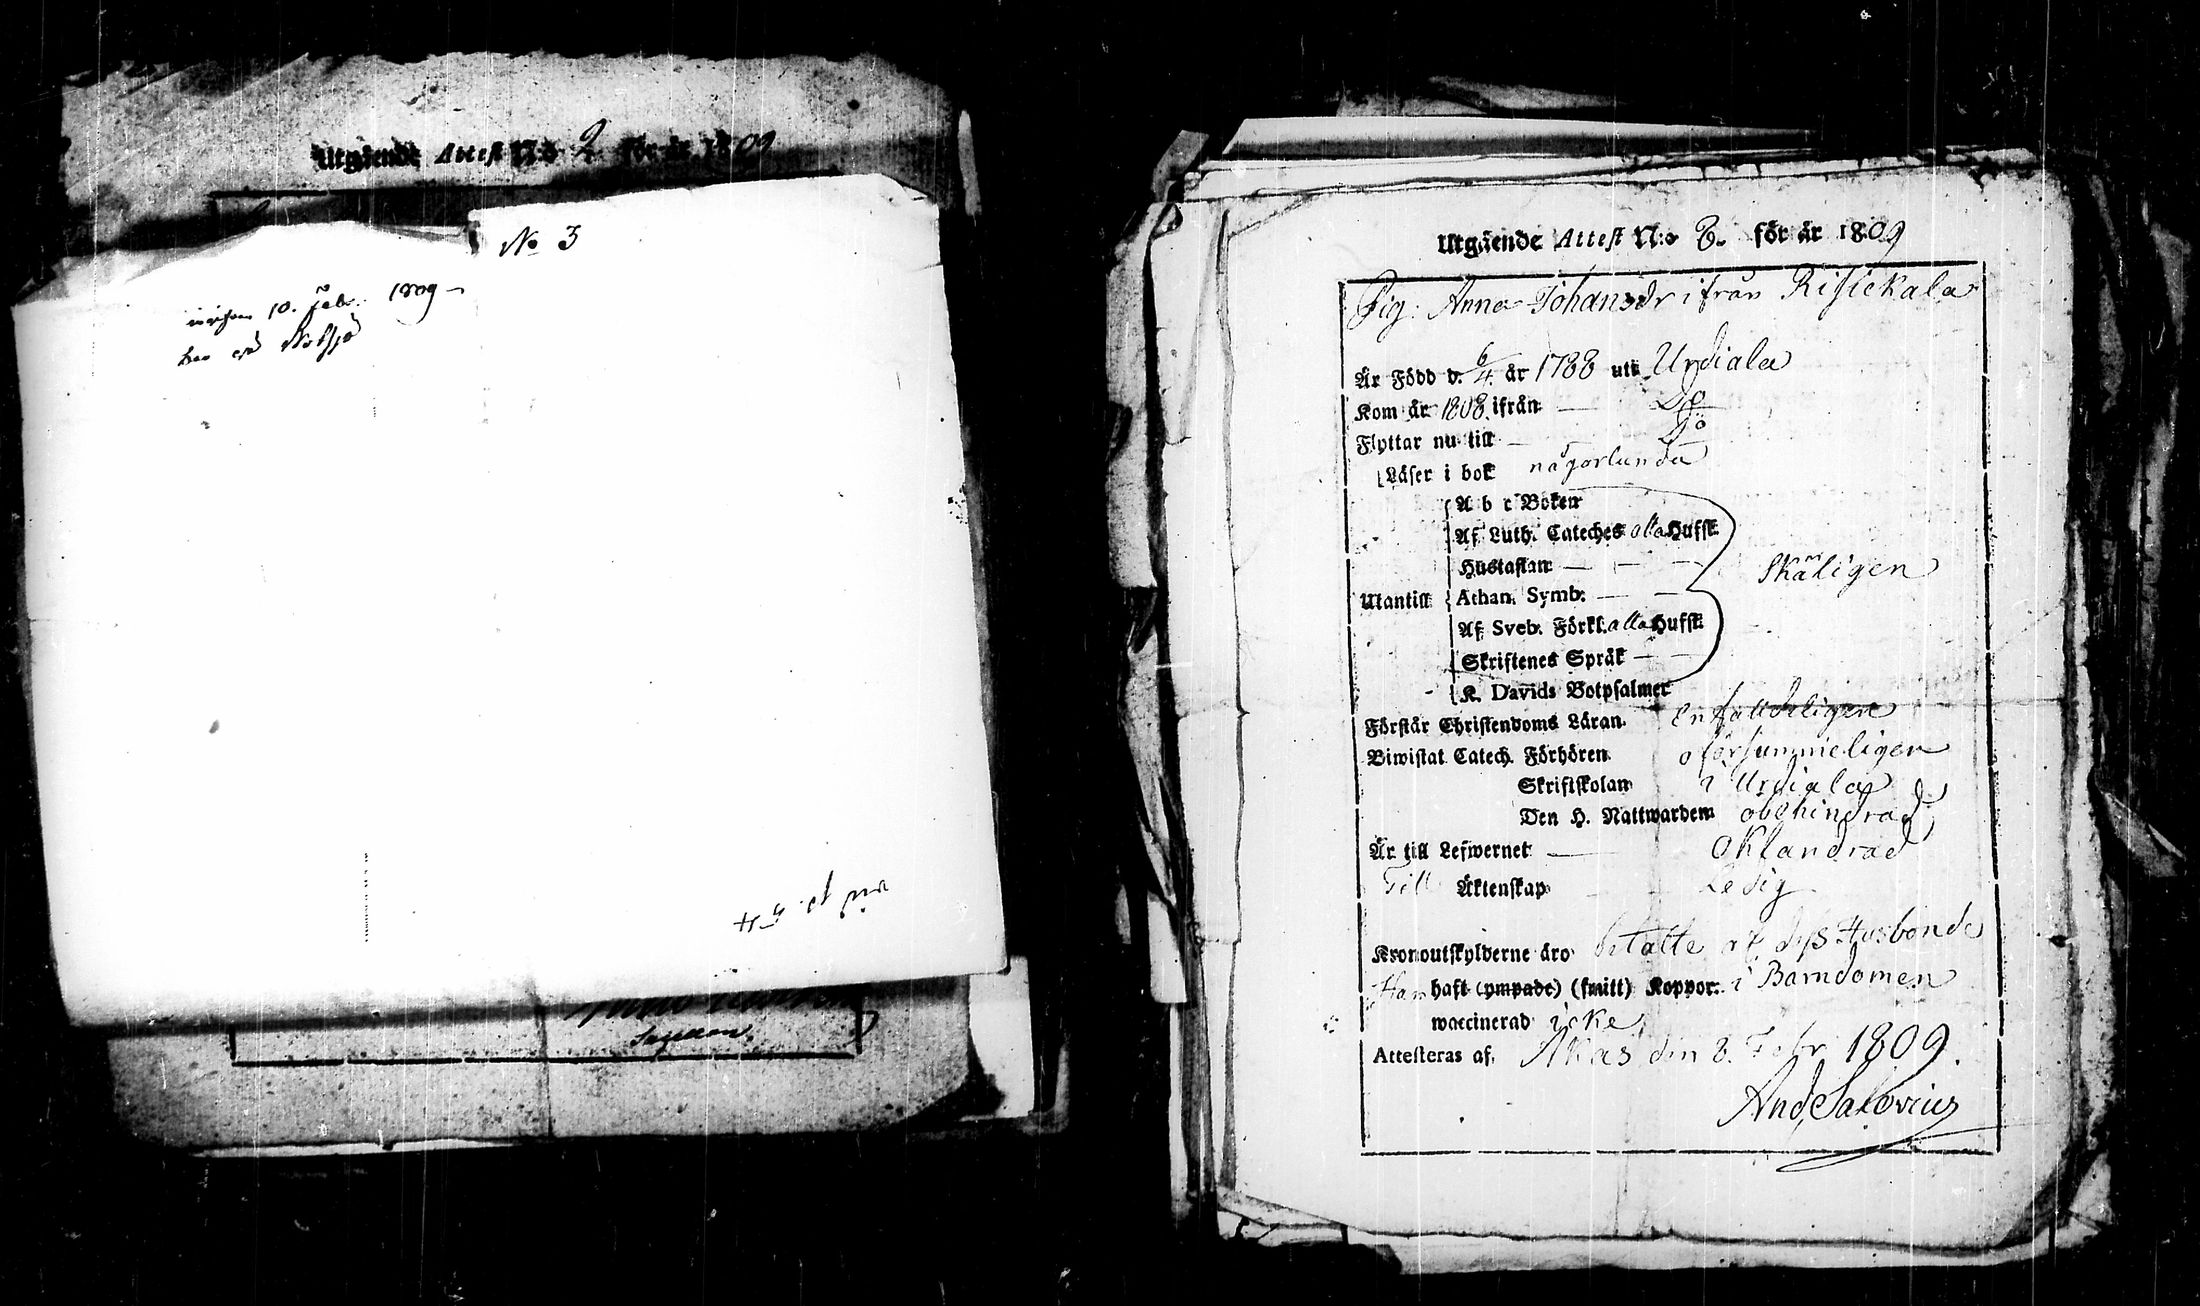 Utgående Attest N:o 2 för år 1809
No 3
10. Feb. 1809
vid p. 54
Utgående Attest N:o 8. för år 1809
Pig: Anna Johansdr ifrån Risickala
Är Född d. 6/4 år 1788 uti Urdiala
Kom år 1808 ifrån — Do
Flyttar nu till — Do
Läser i bok någorlunda
A b c Boken
Af Luth. Cateches alla Hufst.
Hustaflan — — —
Skäligen
Utantill Athan. Symb. — —
Af Sveb. Förkl. alla Hufst.
Skriftenes Språk — —
K. Davids Botpsalmer
Förstår Christendoms Läran. Enfalldeligen
Biwistat Catech. Förhören oförsummeligen
Skriftskolan i Urdiala
Den H. Nattwarden obehindrad
Är till Lefwernet — Oklandrad
Till Äktenskap — Ledig
Kronoutskylderne äro betalte af dess Husbonde
Har haft (ympade) (smitt) Koppor i Barndomen
waccinerad icke
Attesteras af. Akas den 8. Febr 1809.
And Salovius